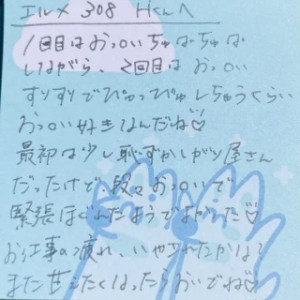 エルメ 308 Hくんへ
1回目はおっぱいちゅぱちゅぱ
しながら、2回目はおっぱい
すりすりでぴゅっぴゅしちゅうくらい
おっぱい好きなんだね♡
最初は少し恥ずかしがり屋さん
だったけど、段々おっぱいで
緊張ほぐれたようでよかった♡
お仕事の疲れ、いやされたかな?
また甘えたくなったらおいでね♡